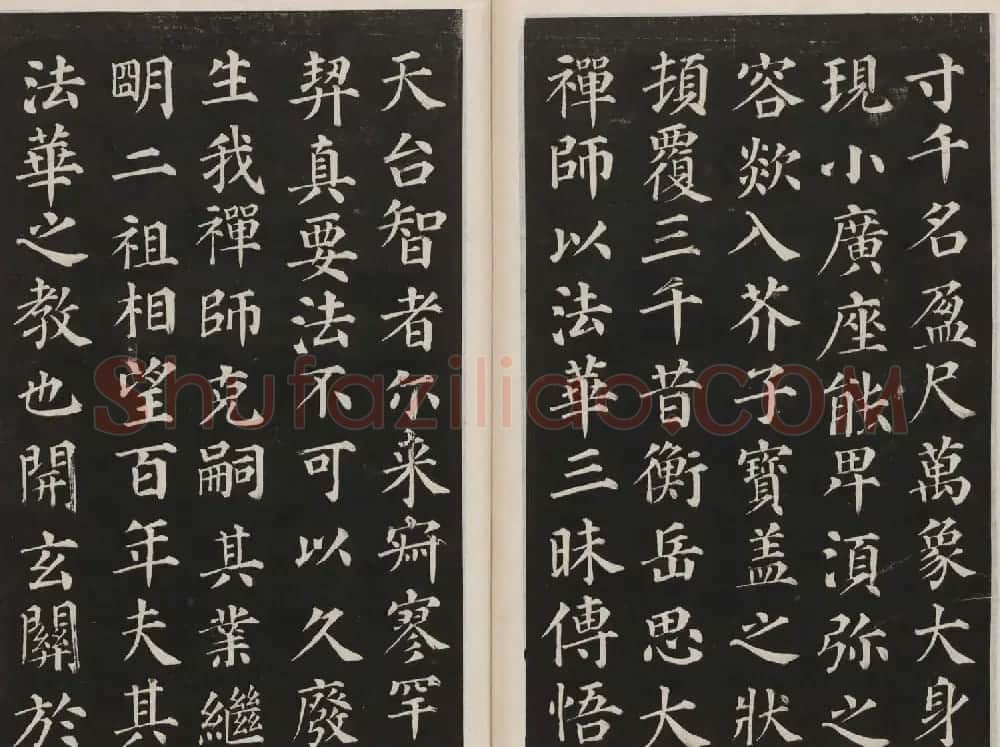 寸千名盈尺萬象大身
現小廣座能卑湏弥之
容欻入芥子寶盖之狀
頓覆三千昔衡岳思大
禪師以法華三昧傳悟
天台智者尒来寂寥罕
契真要法不可以久廢
生我禪師克嗣其業繼
朙二祖相望百年夫其
法華之教也開玄關於
Shufaziliao.COM